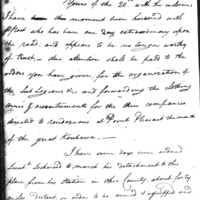 Yours of the 20th with the inclosures
I have this moment been honored with
Effort who has been one day extraordinary upon
the road, and appears to be no longer worthy
of trust — due attention shall be paid to the
orders you have given, for the organization of
the Sub Legions & and forwarding the clothing
arms & accoutrements for the three companies
directed to rendezvous at Point Pleasant the mouth
of the great Kanhawa. —
I have some days since ordered
Lieut. Lockwood to march his detachment to this
place, from his station in Ohio County, about forty
miles distant in order to be armed & equipped and